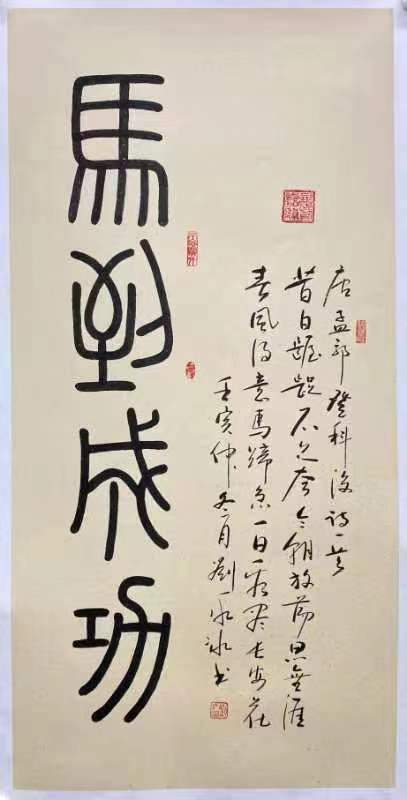 馬到成功
唐孟郊登科後诗一首
昔日齷齪不足夸今朝放荡思無涯
春風得意馬蹄急一日看尽长安花
壬寅仲冬月劉永冰书